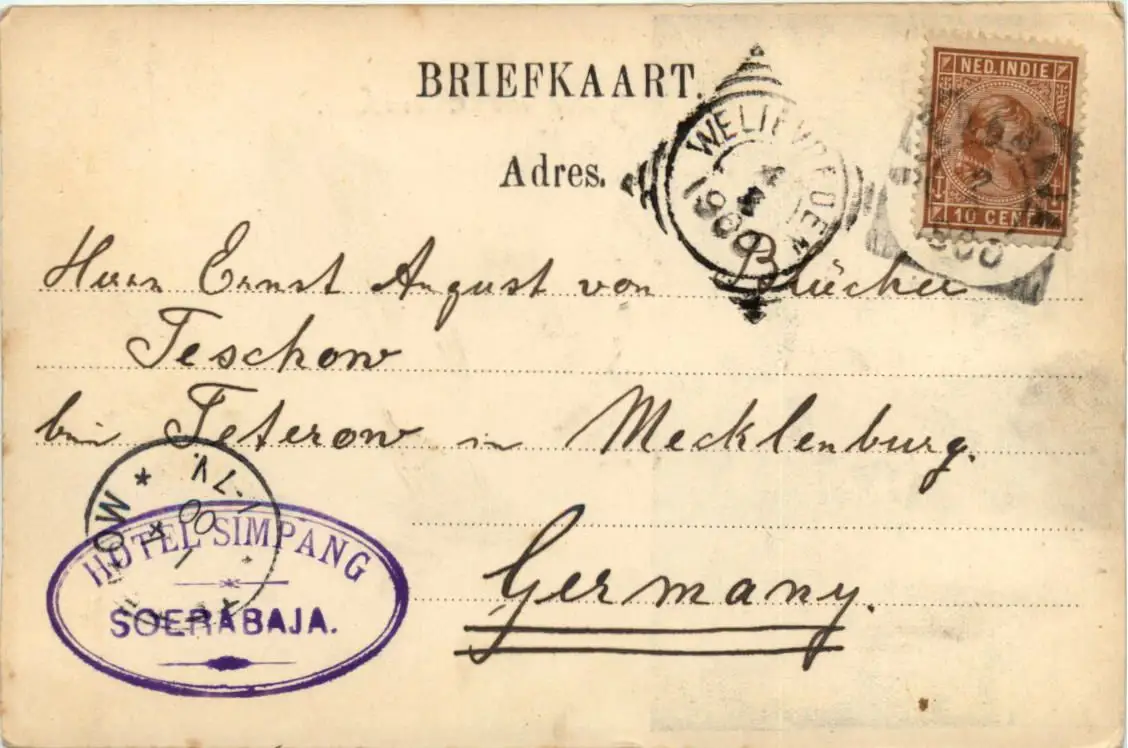 BRIEFKAART.
Adres.
NED. INDIE
10 CENT
WELTEVREDEN
1900
Herrn Ernst August von Blücher
Teschow
bei Teterow in Mecklenburg.
Germany.
HOTEL SIMPANG
SOERABAJA.